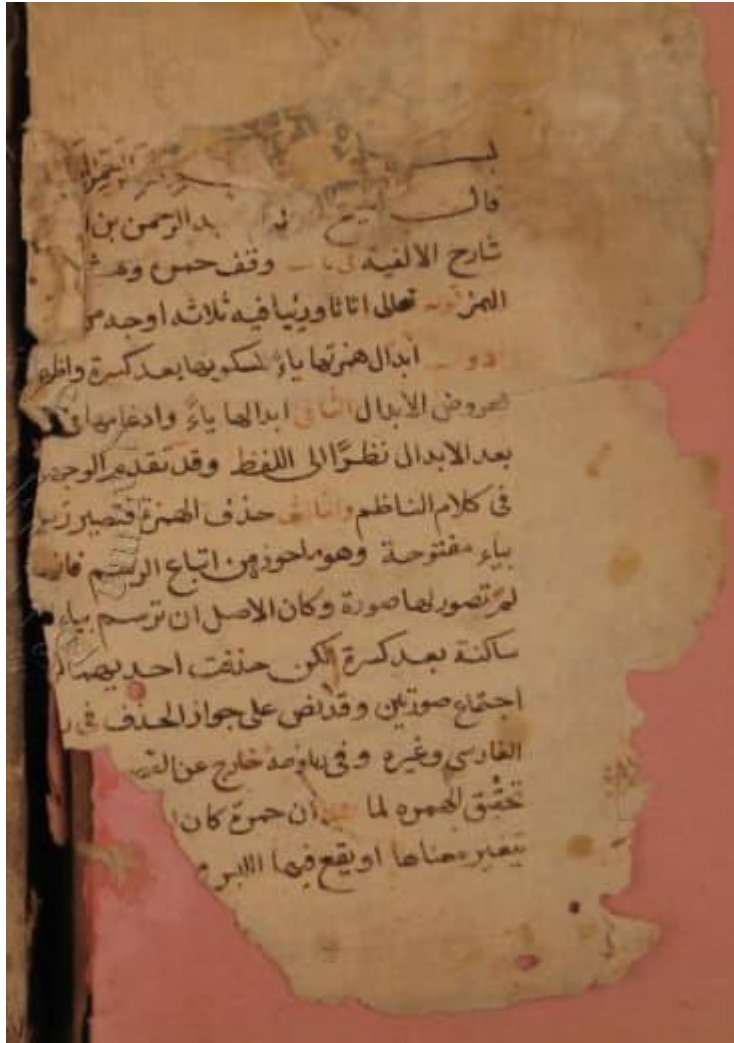 بسم
قال الشيخ بد الرحمن بن ا
شارح الالفية في باب وقف حمزة وهشا
الهمز قوله تعالى اثاثا ورئيا فيه ثلاثه اوجه
ابدال همزتها ياءً لسكونها بعد كسرة واظها
لعروض الابدال الثاني ابدالها ياءً وادغامها في
بعد الابدال نظرًا الى اللفظ وقد تقدم الوجها
في كلام الناظم والثالث حذف الهمزة فتصير
بياء مفتوحة وهو ماخوذ من اتباع الرسم فانه
لم تصور لها صورة وكان الاصل ان ترسم بياء
ساكنة بعد كسرة لكن حذفت احديهما
اجتماع صورتين وقد نص على جواز الحذف في
الفارسي وغيره وفي خارج عن
تحقق الهمزه لما ان حمزة كان
بتغيره معناها او يقع فيها اللبس